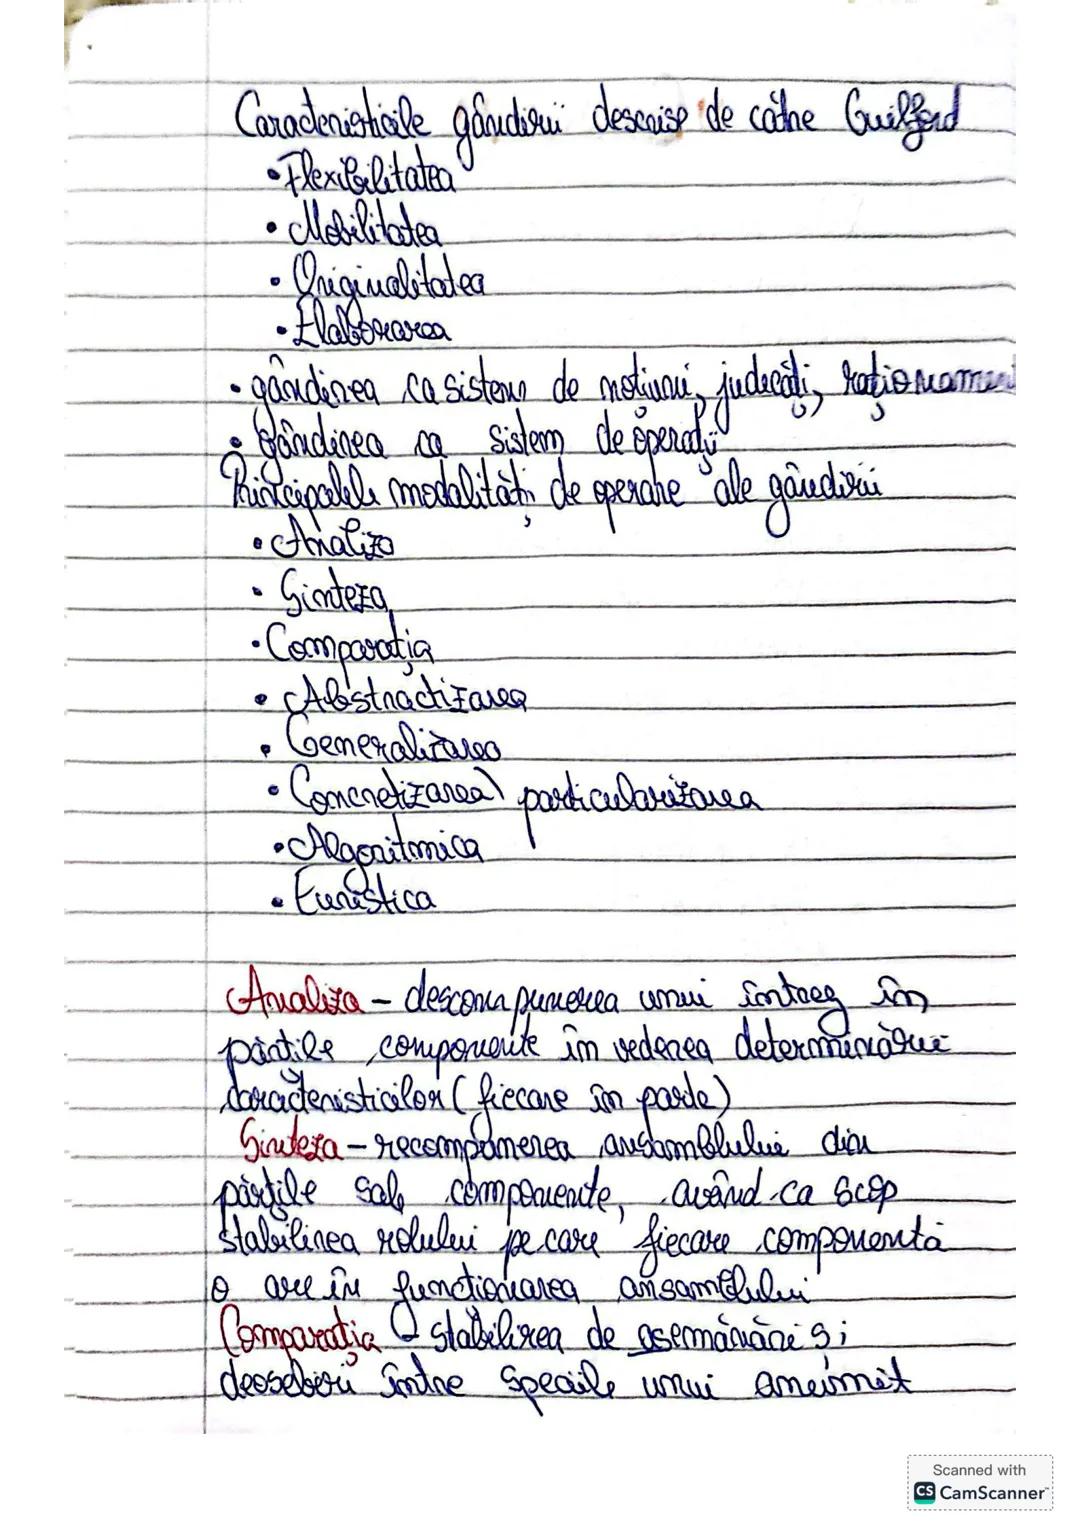 Caracteristicile gândirii descrise de către Guilford
• Flexibilitatea
• Mobilitatea
• Originalitatea
• Elaborarea
• gândirea ca sistem de noțiuni, judecăți, raționamen
• Gândirea ca sistem de operații
Principalele modalități de operare ale gândirii
• Analiza
• Sinteza
• Comparația
• Abstractizarea
• Generalizarea
• Concretizarea\ particularizarea
• Algoritmica
• Euristica
Analiza – descompunerea unui întreg în
părțile componente în vederea determinării
caracteristicilor (fiecare în parte)
Sinteza – recompunerea ansamblului din
părțile sale componente, având ca scop
stabilirea rolului pe care fiecare componentă
o are în funcționarea ansamblului
Comparația – stabilirea de asemănări și
deosebiri între speciile unui anumit
Scanned with
CS CamScanner